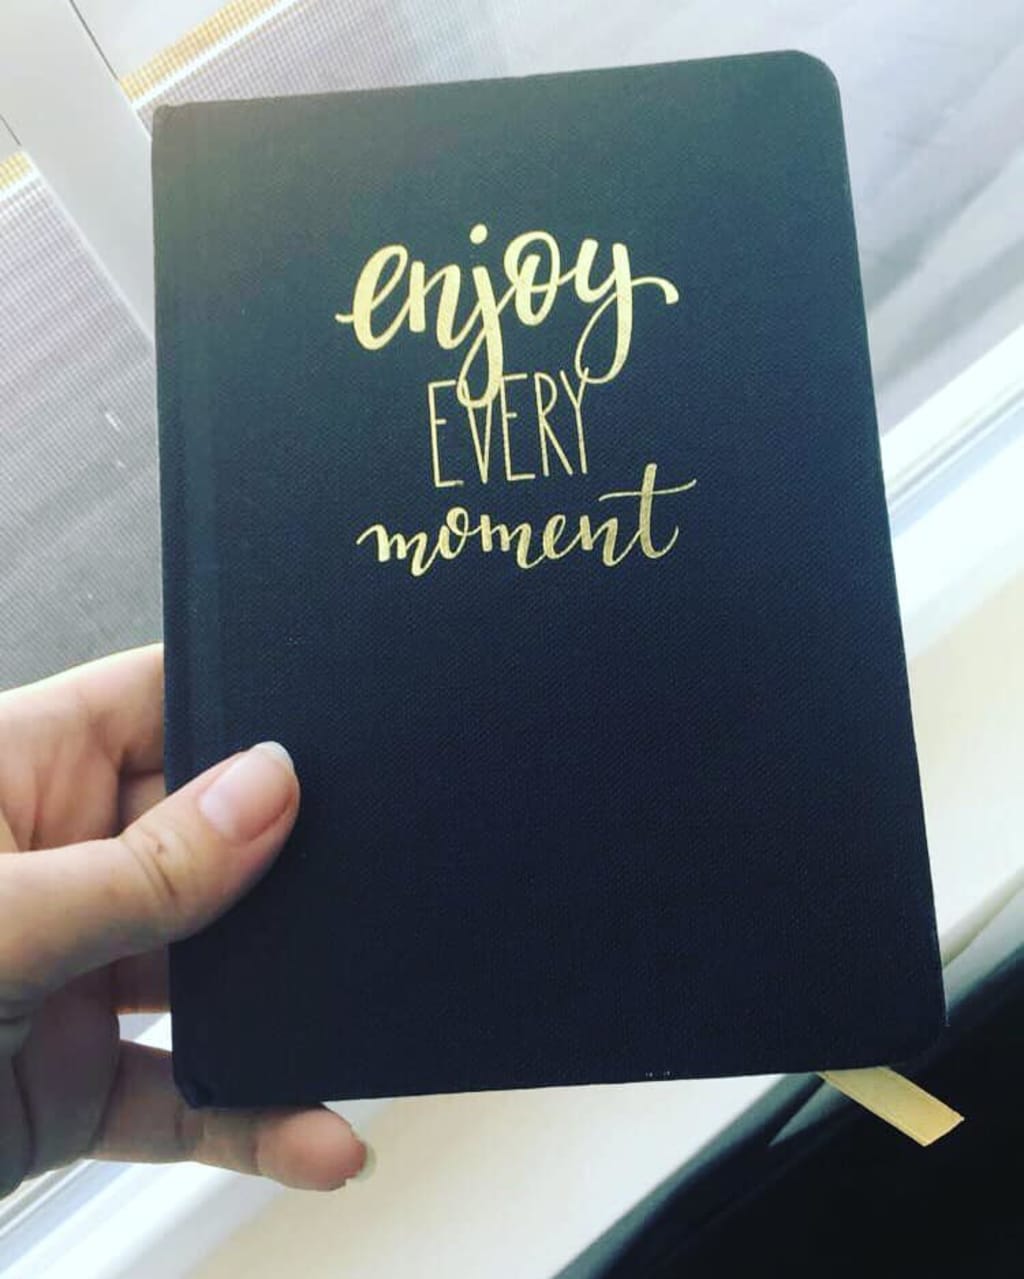 enjoy
EVERY
moment